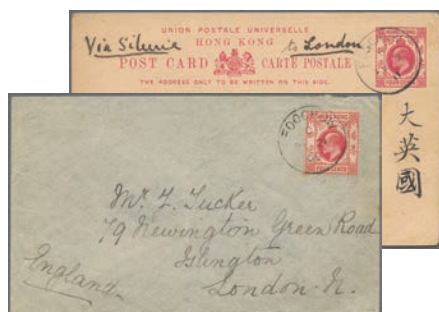 UNION POSTALE UNIVERSELLE
HONG KONG
Via Siberia to London
POST CARD CARTE POSTALE
THE ADDRESS ONLY TO BE WRITTEN ON THIS SIDE.
大英國
FOOCHOW
Mr. Tucker
79 Newington Green Road
Islington
London. N.
England